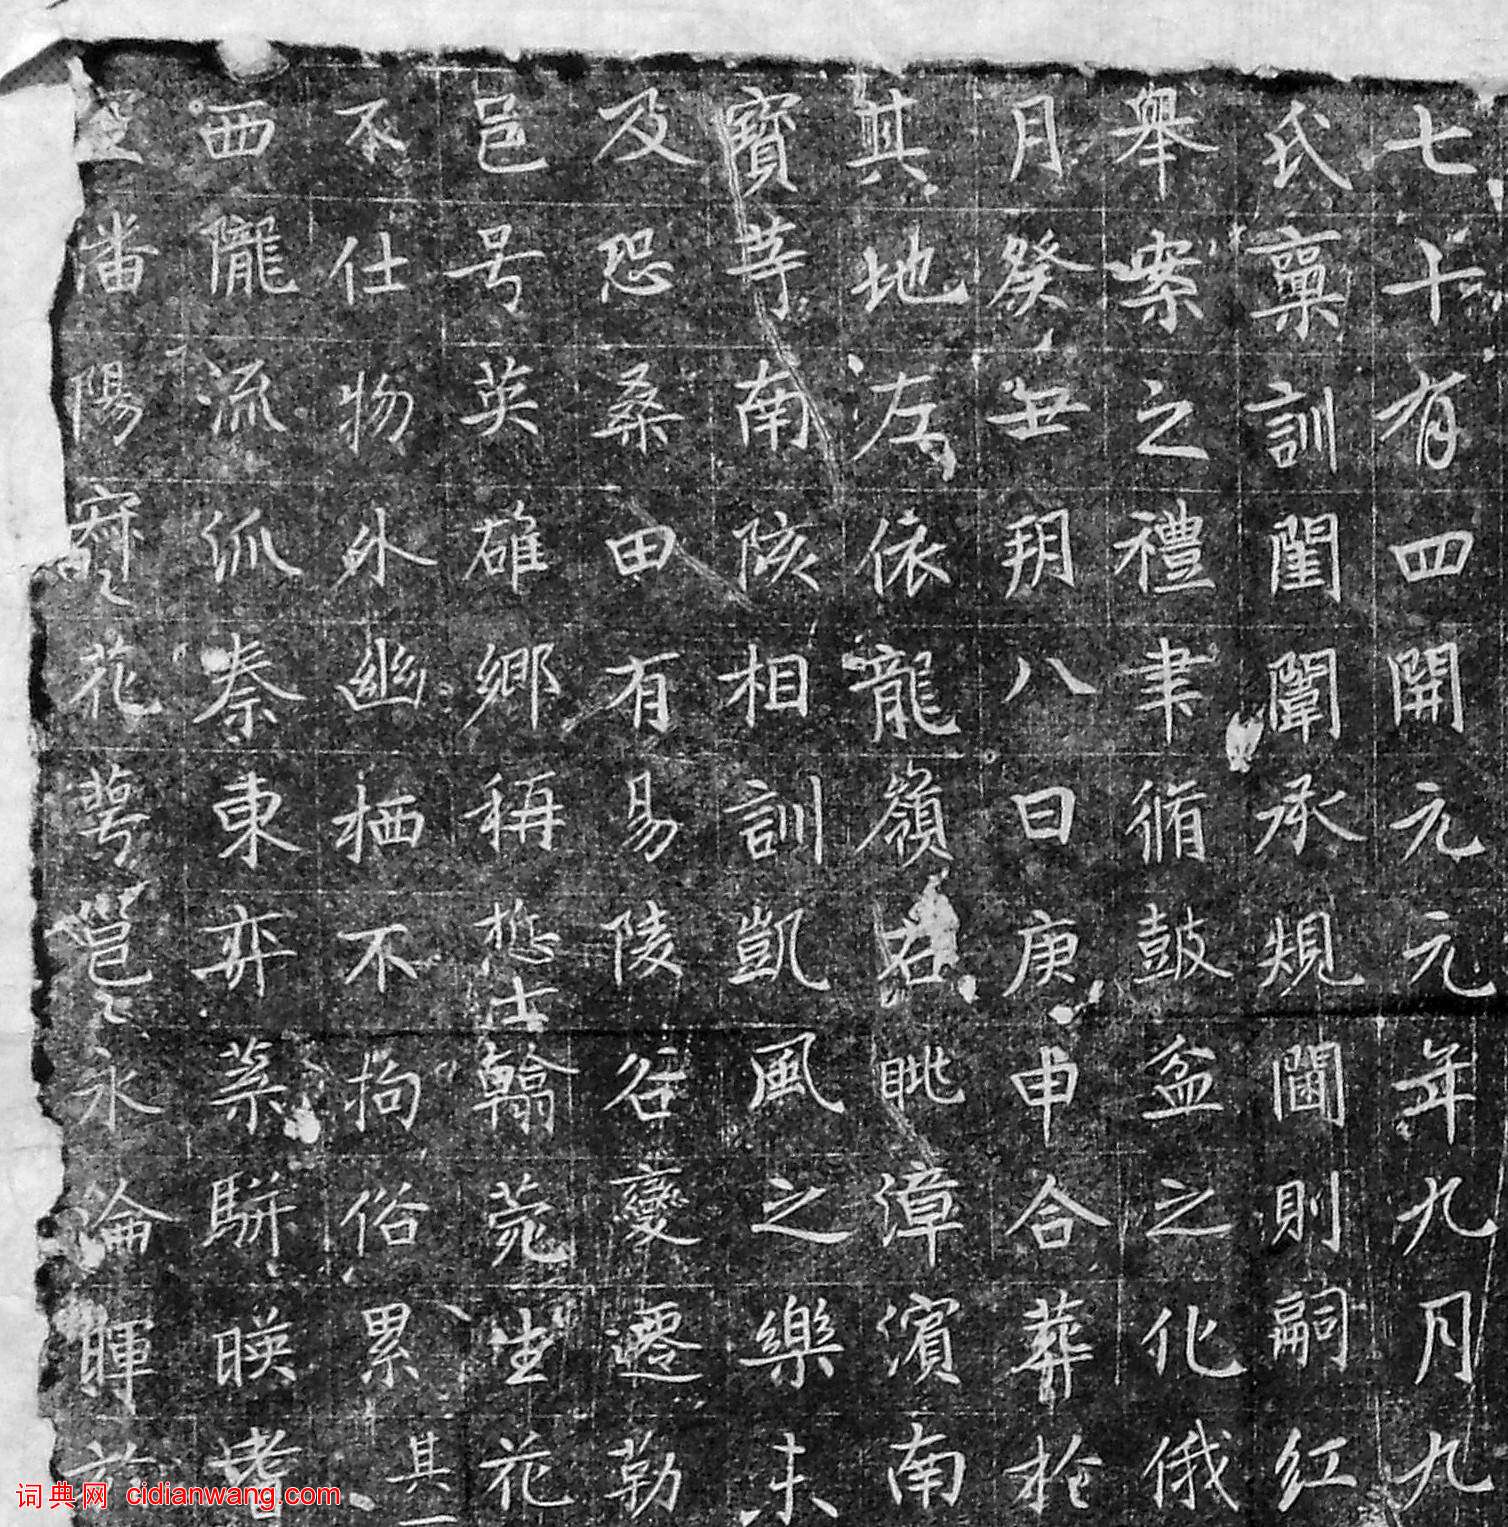 七十有四開元元年九月九
氏稟訓閨闈承規閫則嗣紅
舉案之禮聿脩鼓盆之化俄
月癸丑玥八日庚申合葬於
其地左依龍嶺右眺漳濱南
寶芋南陔相訓凱風之樂未
及恐桑田有易陵谷變遷勒
邑号英雄鄉稱悊士翰菀生花
不仕物外幽栖不拘俗累其一
西隴流派秦東弈葉駢暎
潘陽花萼邕〻永淪暉於
词典网 cidianwang.com